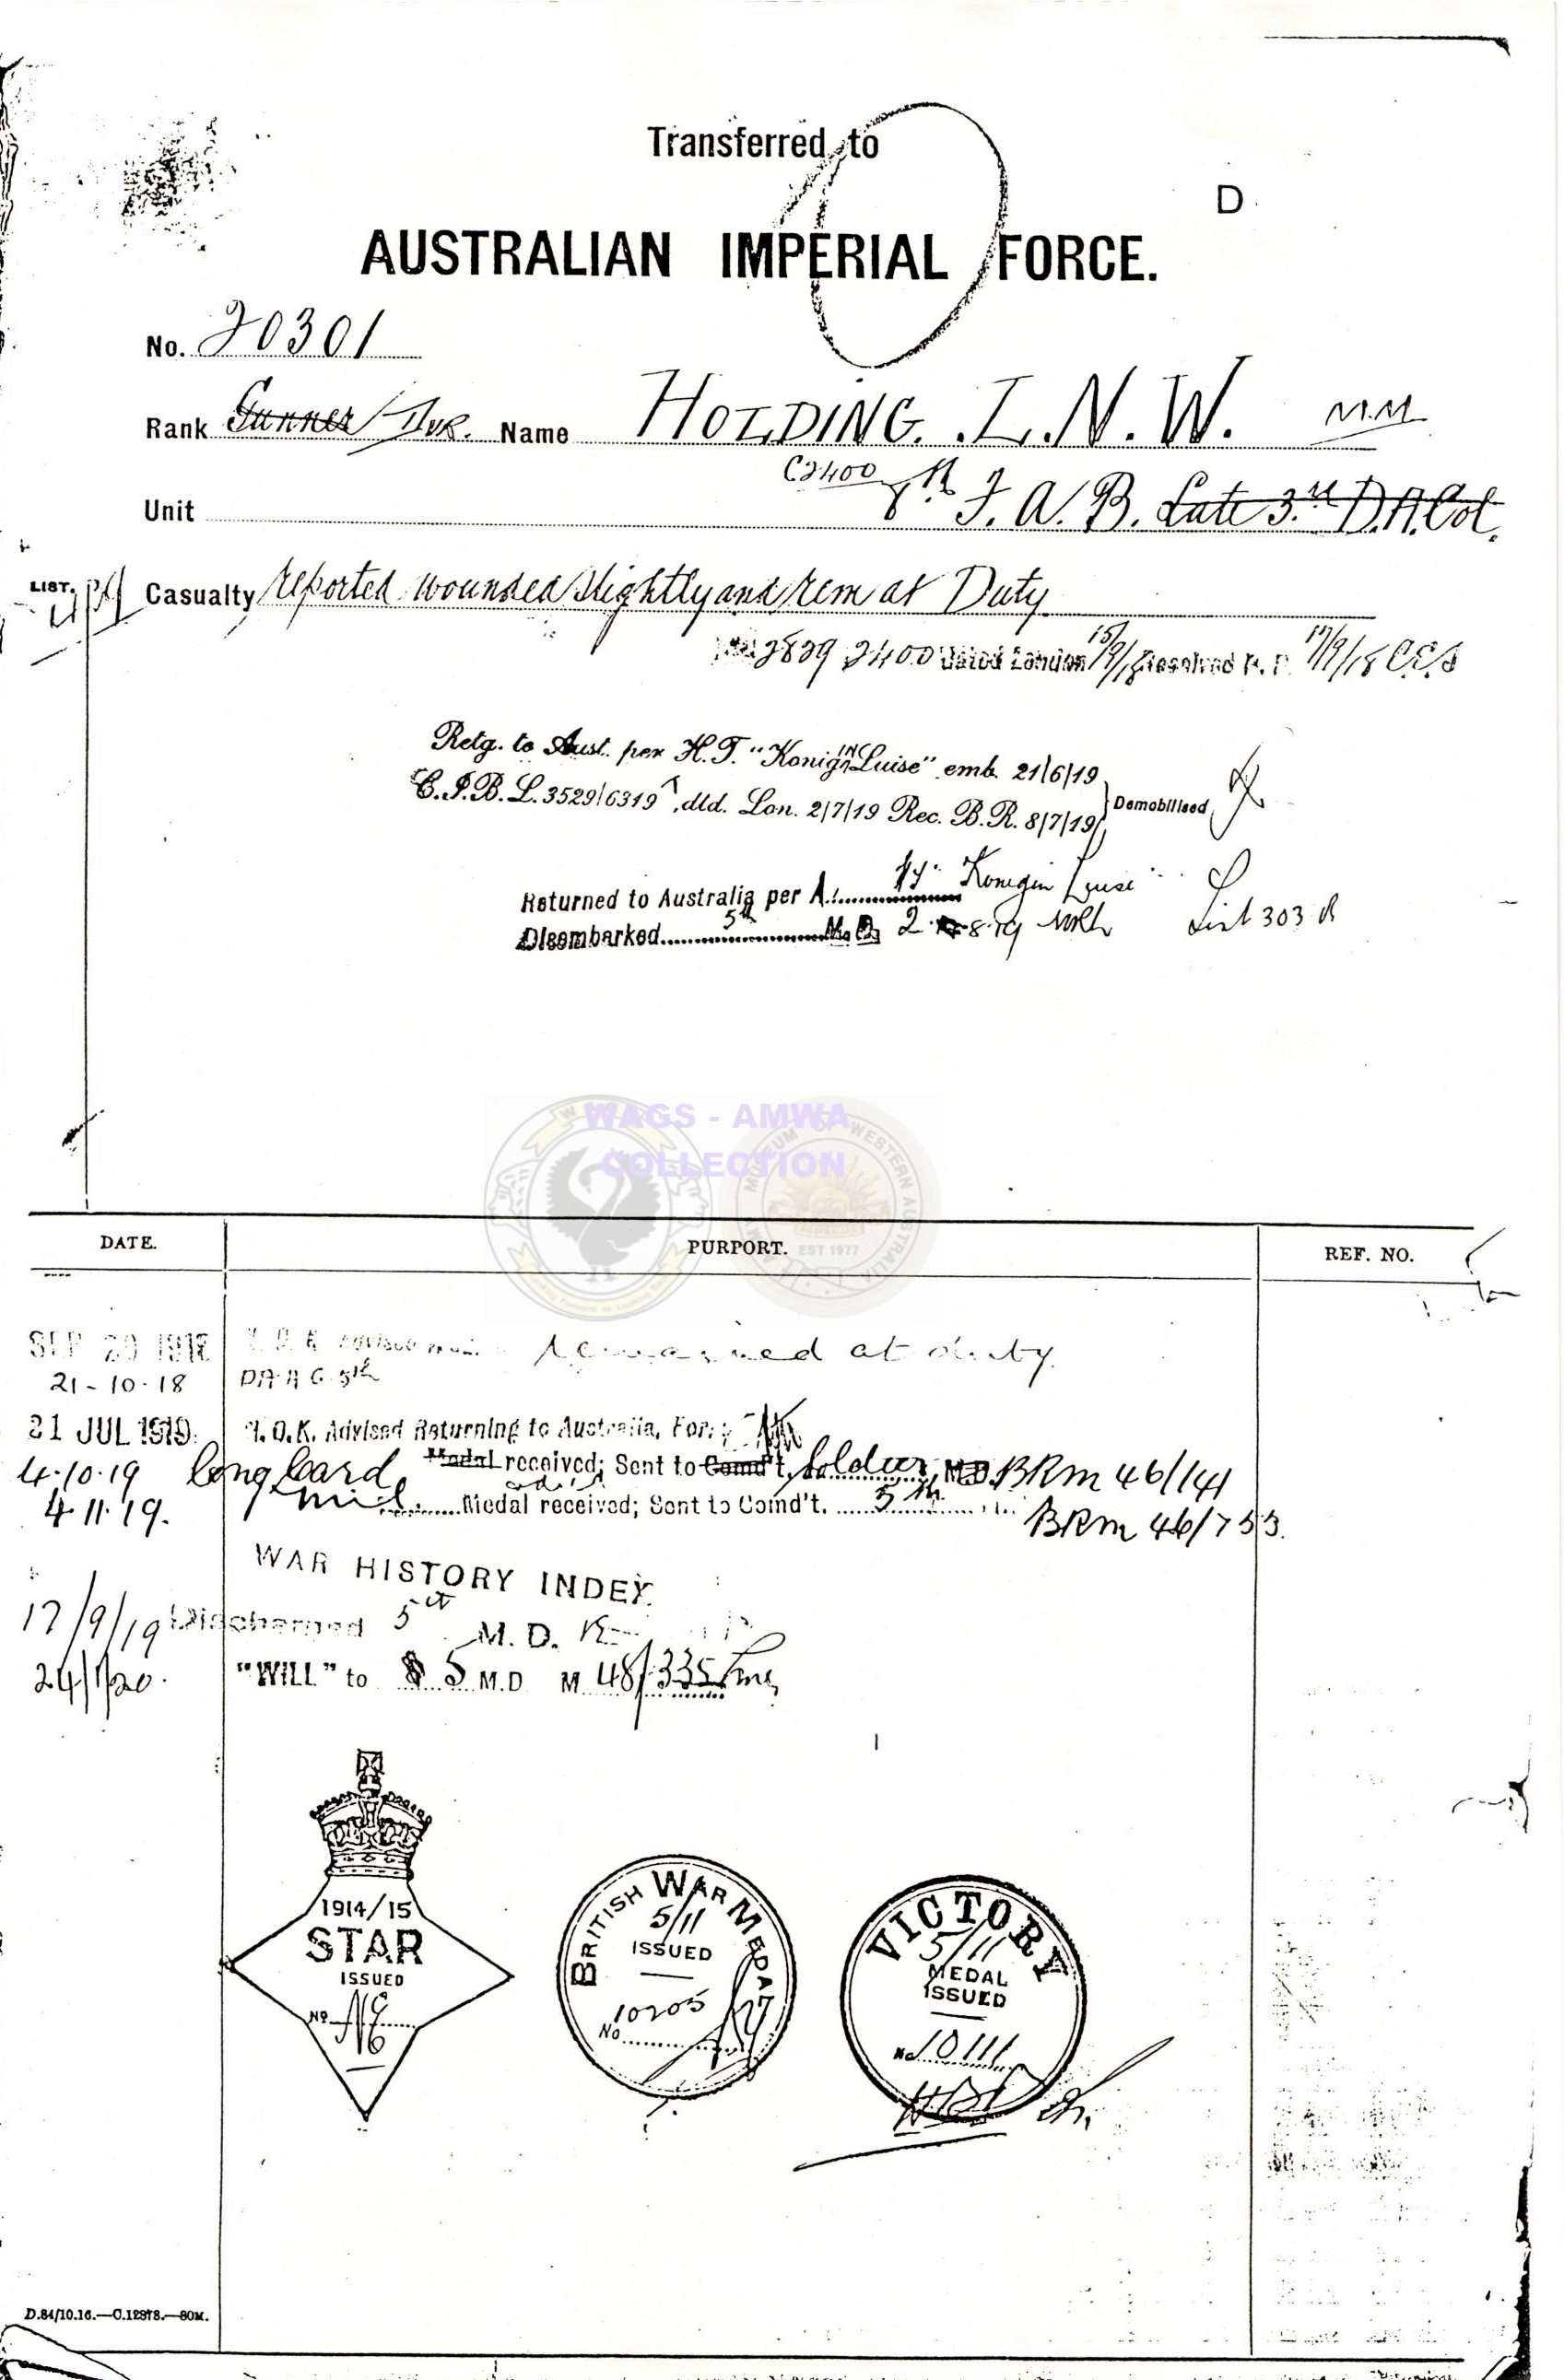 Transferred to
D
AUSTRALIAN IMPERIAL FORCE.
No. 20301
Rank Gunner / Dvr. Name HOLDING. L. N. W. M.M.
C2400
Unit 8th F. A. B. Late 3rd D.A.Col.
LIST. Casualty reported wounded slightly and rem at Duty
2829 2400 dated London 15/9/18 Received 17/9/18
Retg. to Aust. per H.T. "Konigin Luise" emb. 21/6/19
C.I.B.L. 3529/6319, dld. Lon. 2/7/19 Rec. B.R. 8/7/19 Demobilised
Returned to Australia per "Konigin Luise"
Disembarked 5th M.D. 2.8.19 List 303
WAGS - AMWA
COLLECTION
MUSEUM OF WESTERN AUSTRALIA
EST 1977
DATE. PURPORT. REF. NO.
SEP 20 1918 remained at duty.
21-10-18 5th
21 JUL 1919 N.O.K. Advised Returning to Australia, For
4.10.19 Cong Card Medal received; Sent to Comd't. Soldier M.D. BRM 46/141
4.11.19. Mil. Medal received; Sent to Comd't. 5th BRM 46/753.
WAR HISTORY INDEX.
17/9/19 Discharged 5th M.D.
24/1/20. "WILL" to 5 M.D M 48/335
1914/15
STAR
ISSUED
No NE
BRITISH WAR MEDAL
5/11
ISSUED
10205
No
VICTORY
5/11
MEDAL
ISSUED
No 10111
D.84/10.16.—C.12378.—80M.